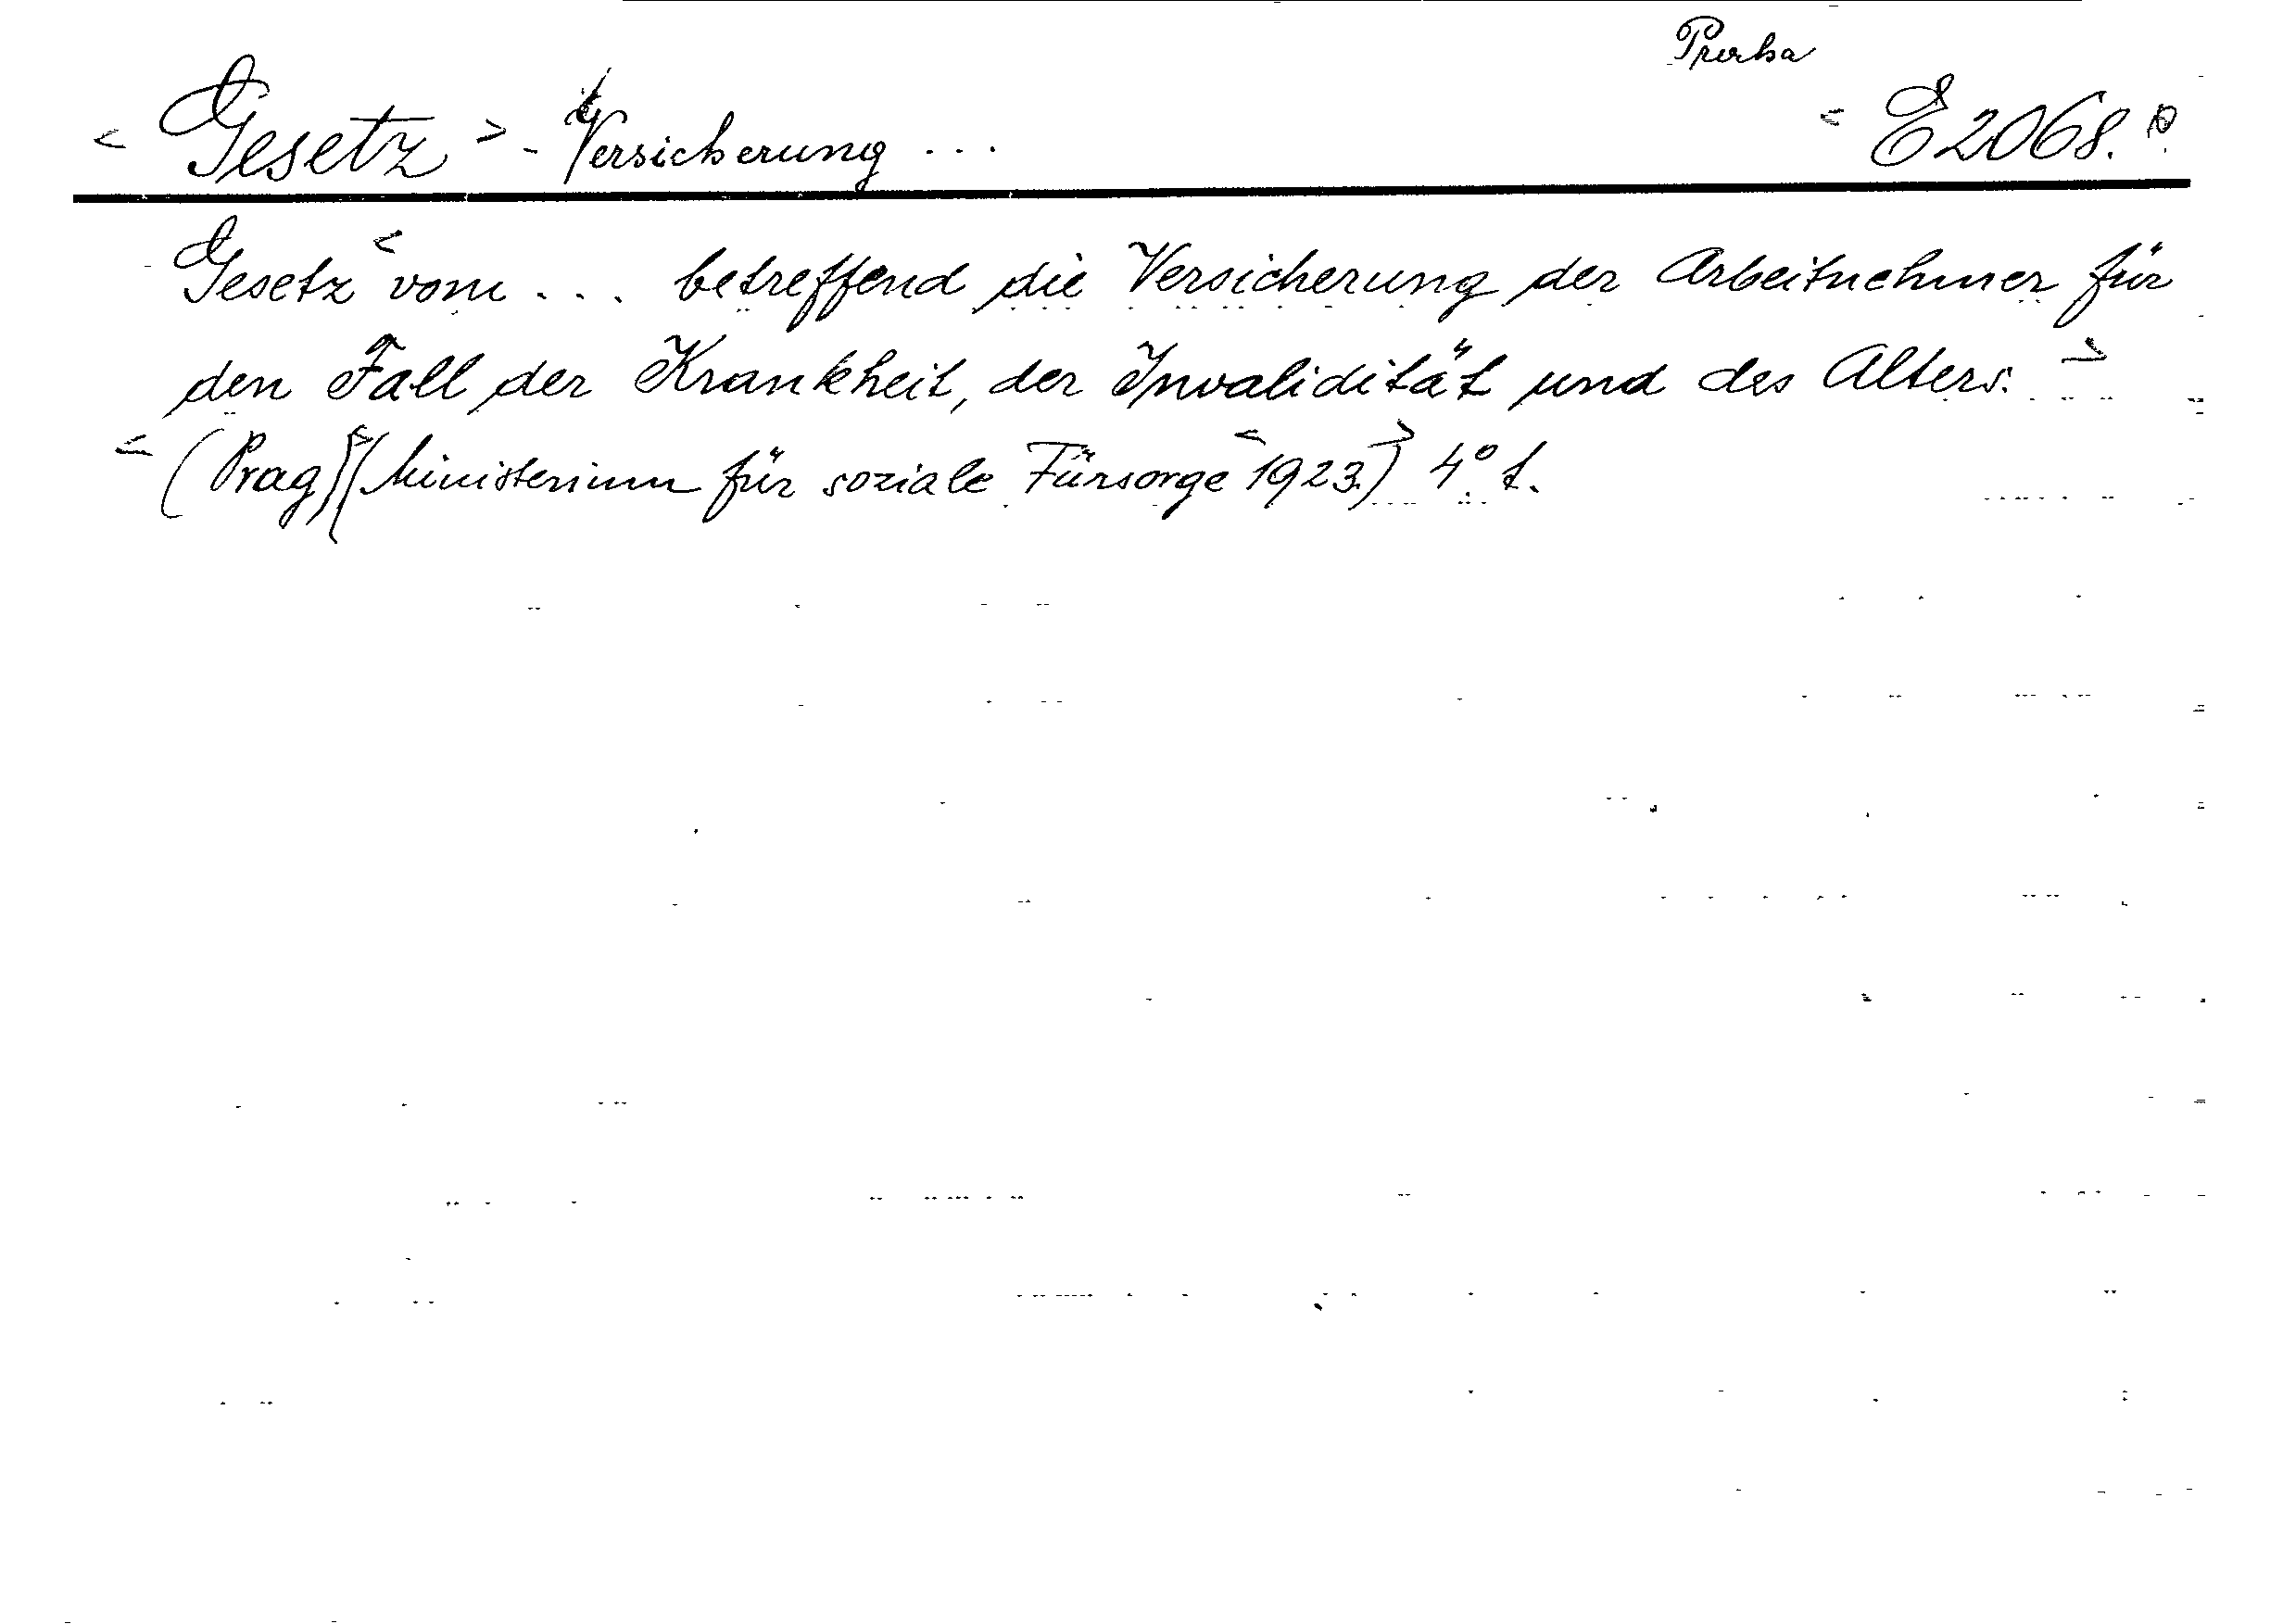 < Gesetz > - Versicherung ... < E2068.
Gesetz < vom ... betreffend die Versicherung der Arbeitnehmer für
den Fall der Krankheit, der Invalidität und des Alters. >
< (Prag) (Ministerium für soziale Fürsorge < 1923.) > 4° 1.